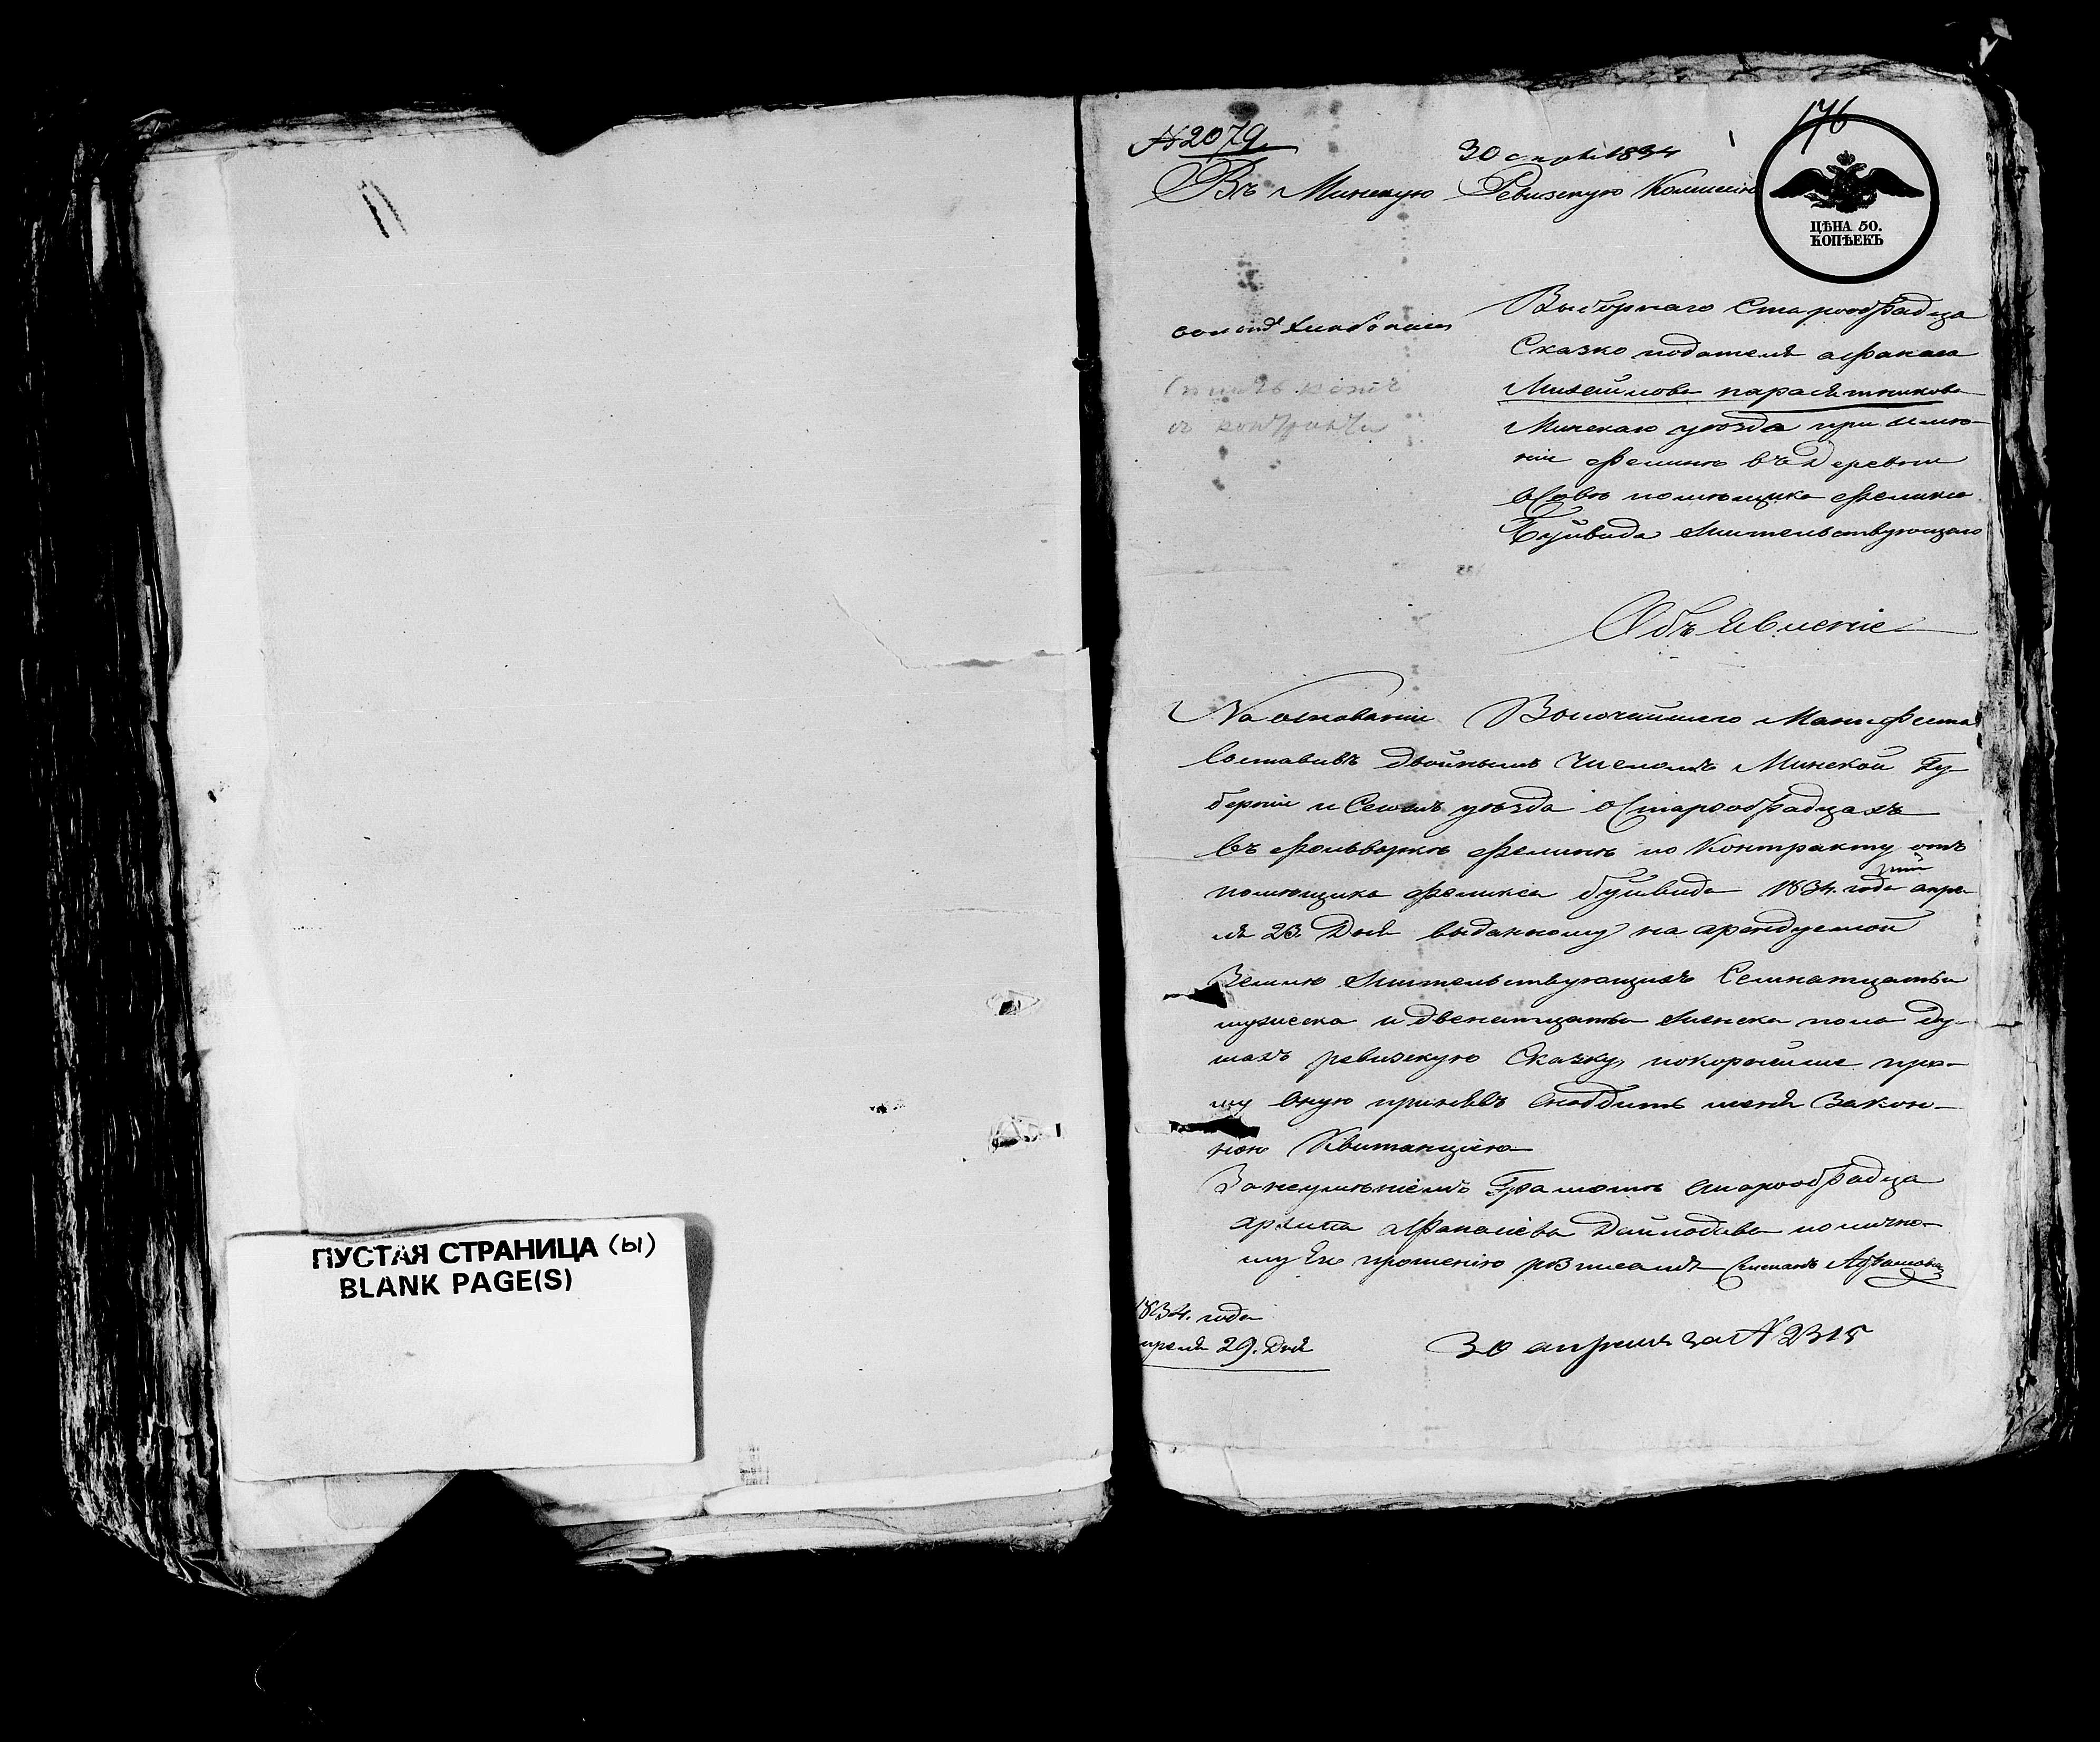 ПУСТАЯ СТРАНИЦА (Ы)
BLANK PAGE(S)
176
№ 2079
30 1834
Въ Минскую Ревизскую Комиссию
ЦѢНА 50.
КОПѢЕКЪ
Выборнаго Старообрадца
Сказко подателя афанаса
Михайлова
Минскаго уѣзда при имѣ-
ніи фелинѣ въ деревни
помѣщика феликса
Буйвида жительствующаго
Объявленіе
На основаніи Высочайшего Манифеста
Составивъ двойнымъ числомъ Минской Гу-
берніи и Сегожъ уѣзда о Старообрадцахъ
въ фольваркѣ фелинѣ по Контракту отъ
помѣщика феликса буйвида 1834. года апре-
ля 23. Дня выданному на арендуемой
Землю жительствующихъ Семнатцать
мужеска и двенатцать женска пола ду-
шахъ ревизскую Сказку, покорнейше про-
шу оную принявъ снабдить меня Закон-
ною Квитанциею
За неумѣніемъ Грамотѣ старообрадца
афанасіева по лично-
му Его прошенію росписался
1834. года
апреля 29. Дня
30 апреля за № 2315